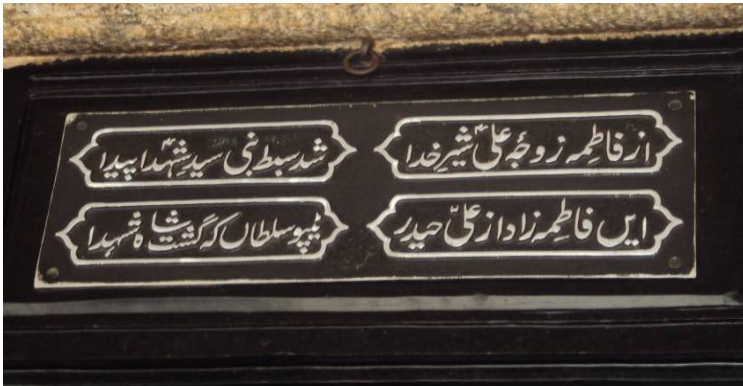 از فاطمہ زوجۂ علیؑ شیرِ خدا
شد سبطِ نبی سیدِ شہدؑا پیدا
ایں فاطمہ زاد از علیؔ حیدر
ٹیپو سلطاں کہ گشت شاہ شہدا